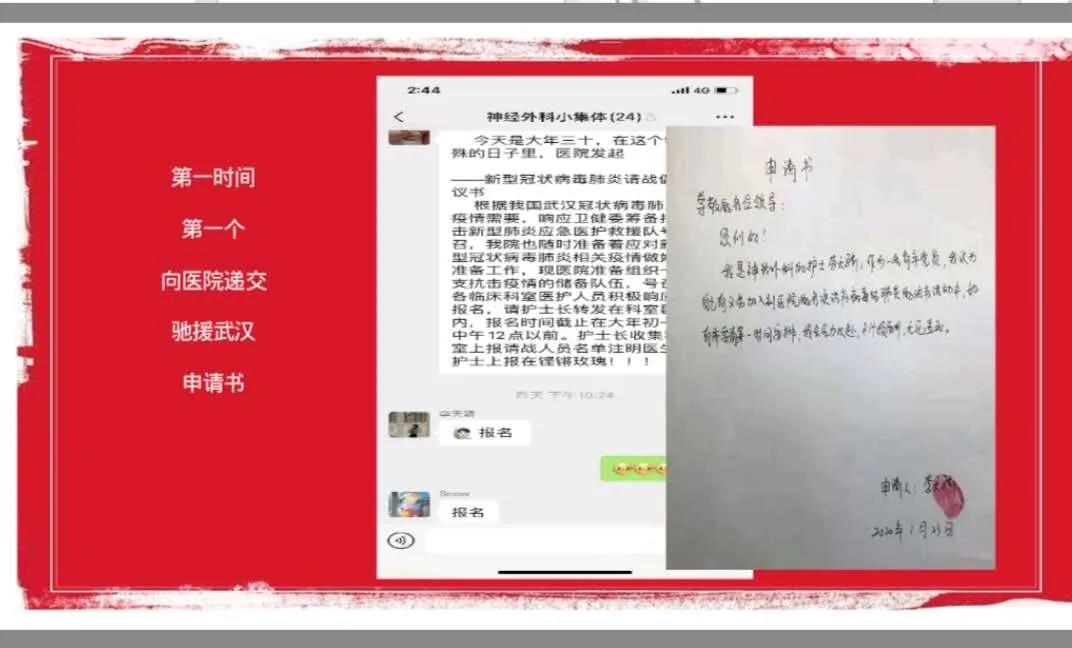 第一时间
第一个
向医院递交
驰援武汉
申请书
2:44
4G
神经外科小集体(24)
今天是大年三十，在这个
殊的日子里，医院发起
——新型冠状病毒肺炎请战倡
议书
根据我国武汉冠状病毒肺
疫情需要，响应卫健委筹备
击新型肺炎应急医护救援队
召，我院也随时准备着应对
型冠状病毒肺炎相关疫情做好
准备工作，现医院准备组织一
支抗击疫情的储备队伍，号召
各临床科室医护人员积极响应
报名，请护士长转发在科室
内，报名时间截止在大年初一
中午12点以前。护士长收集
室上报请战人员名单注明医生
护士上报在铿锵玫瑰！！！
昨天 下午10:24
报名
Snow
报名
申请书
尊敬的各位领导：
您们好！
我是神经外科的护士李天骄，作为一名青年党员，我认为
申请人：李天骄
2020年1月25日